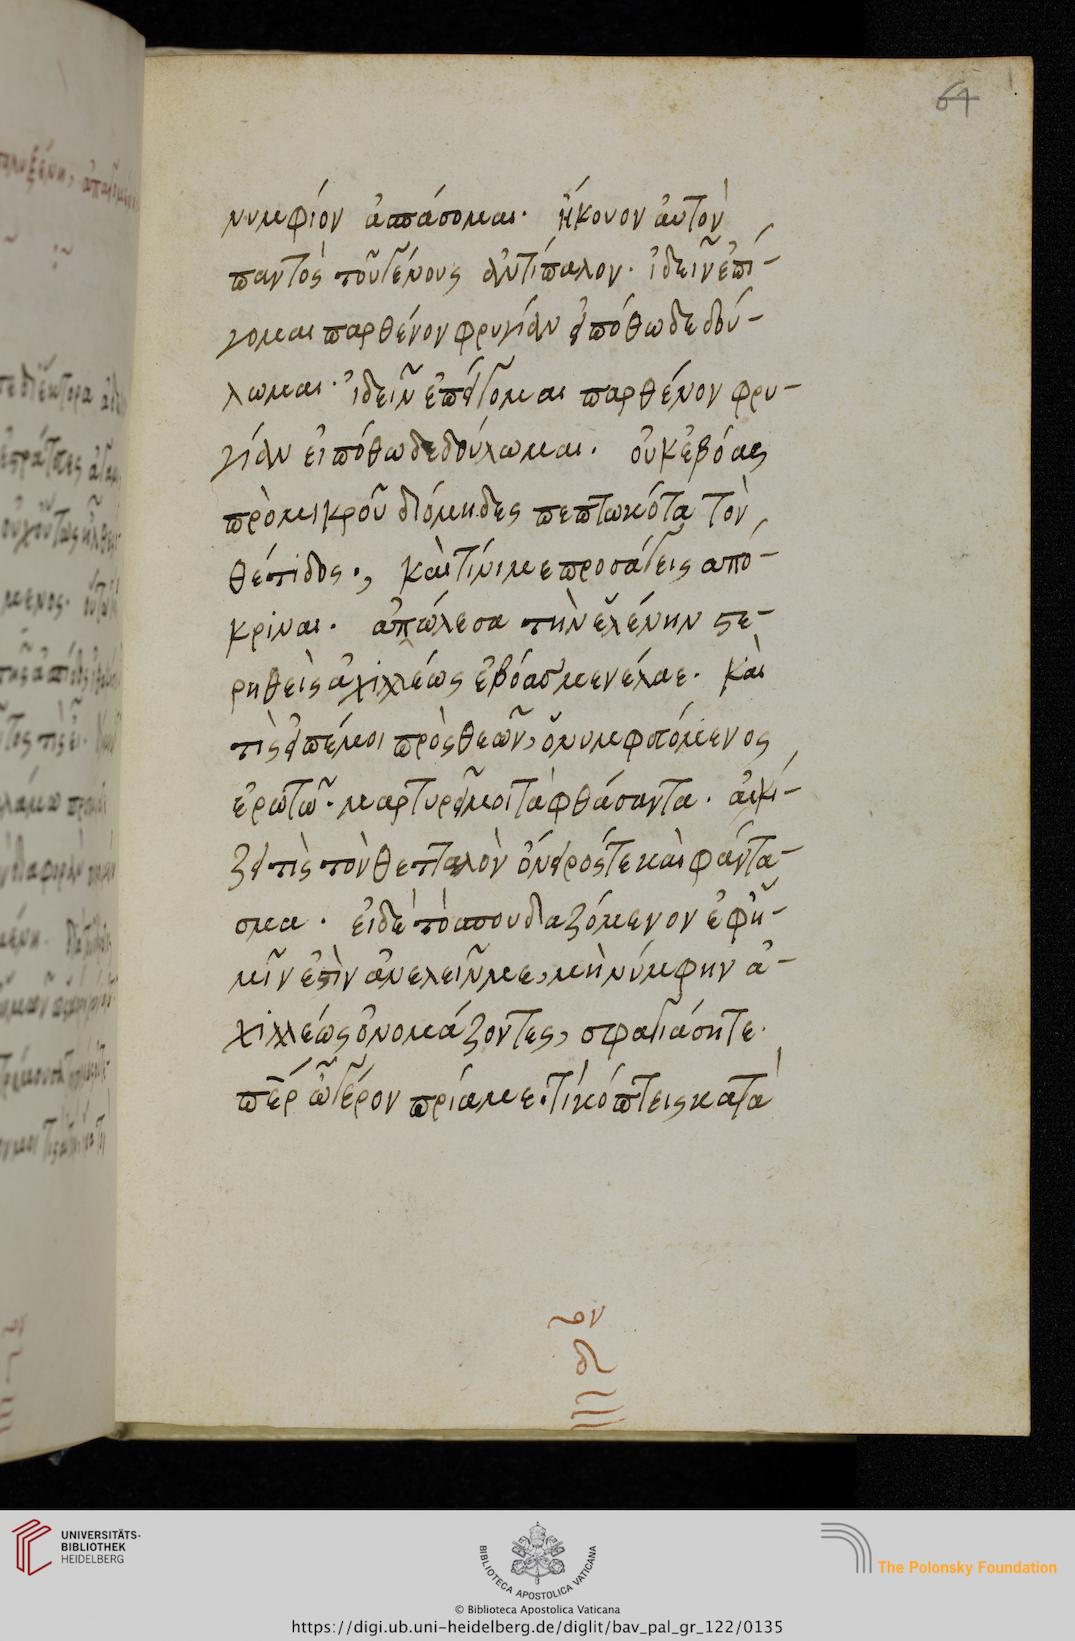 64
νυμφίον ἀσπάσομαι. ἤκουον αὐτὸν
παντὸς τοῦ γένους ἀντίπαλον. ἰδεῖν ἐπεί-
γομαι παρθένον φρυγίαν εἰ πόθω δεδού-
λωμαι. ἰδεῖν ἐπείγομαι παρθένον φρυ-
γίαν εἰ πόθω δεδούλωμαι. οὐκ ἐβόας
πρὸ μικροῦ διόμηδες πεπτωκότα τὸν
θέτιδος., καὶ τίνι με προσάγεις ἀπό-
κριναι. ἀπώλεσα τὴν ἑλένην στε-
ρηθεὶς ἀχιλλέως ἐβόας μενέλαε. καὶ
τὶς εἶπέ μοι πρὸς θεῶν, ὁ νυμφευόμενος
ἐρωτῶ. μαρτυρεῖ μοι τὰ φθάσαντα. αἰκί-
ζει τὶς τὸν θετταλὸν ὄνειρός τε καὶ φάντα-
σμα. εἰ δὲ τὸ σπουδαζόμενον ἐφ' ἡ-
μῖν ἐστὶν ἀνελεῖν με, μὴ νύμφην ἀ-
χιλλέως ὀνομάζοντες, σφαγιάσητε.
ὑπὲρ ὧ γέρον πρίαμε. τί κόπτεις κατὰ
UNIVERSITÄTS-
BIBLIOTHEK
HEIDELBERG
BIBLIOTECA APOSTOLICA VATICANA
The Polonsky Foundation
© Biblioteca Apostolica Vaticana
https://digi.ub.uni-heidelberg.de/diglit/bav_pal_gr_122/0135